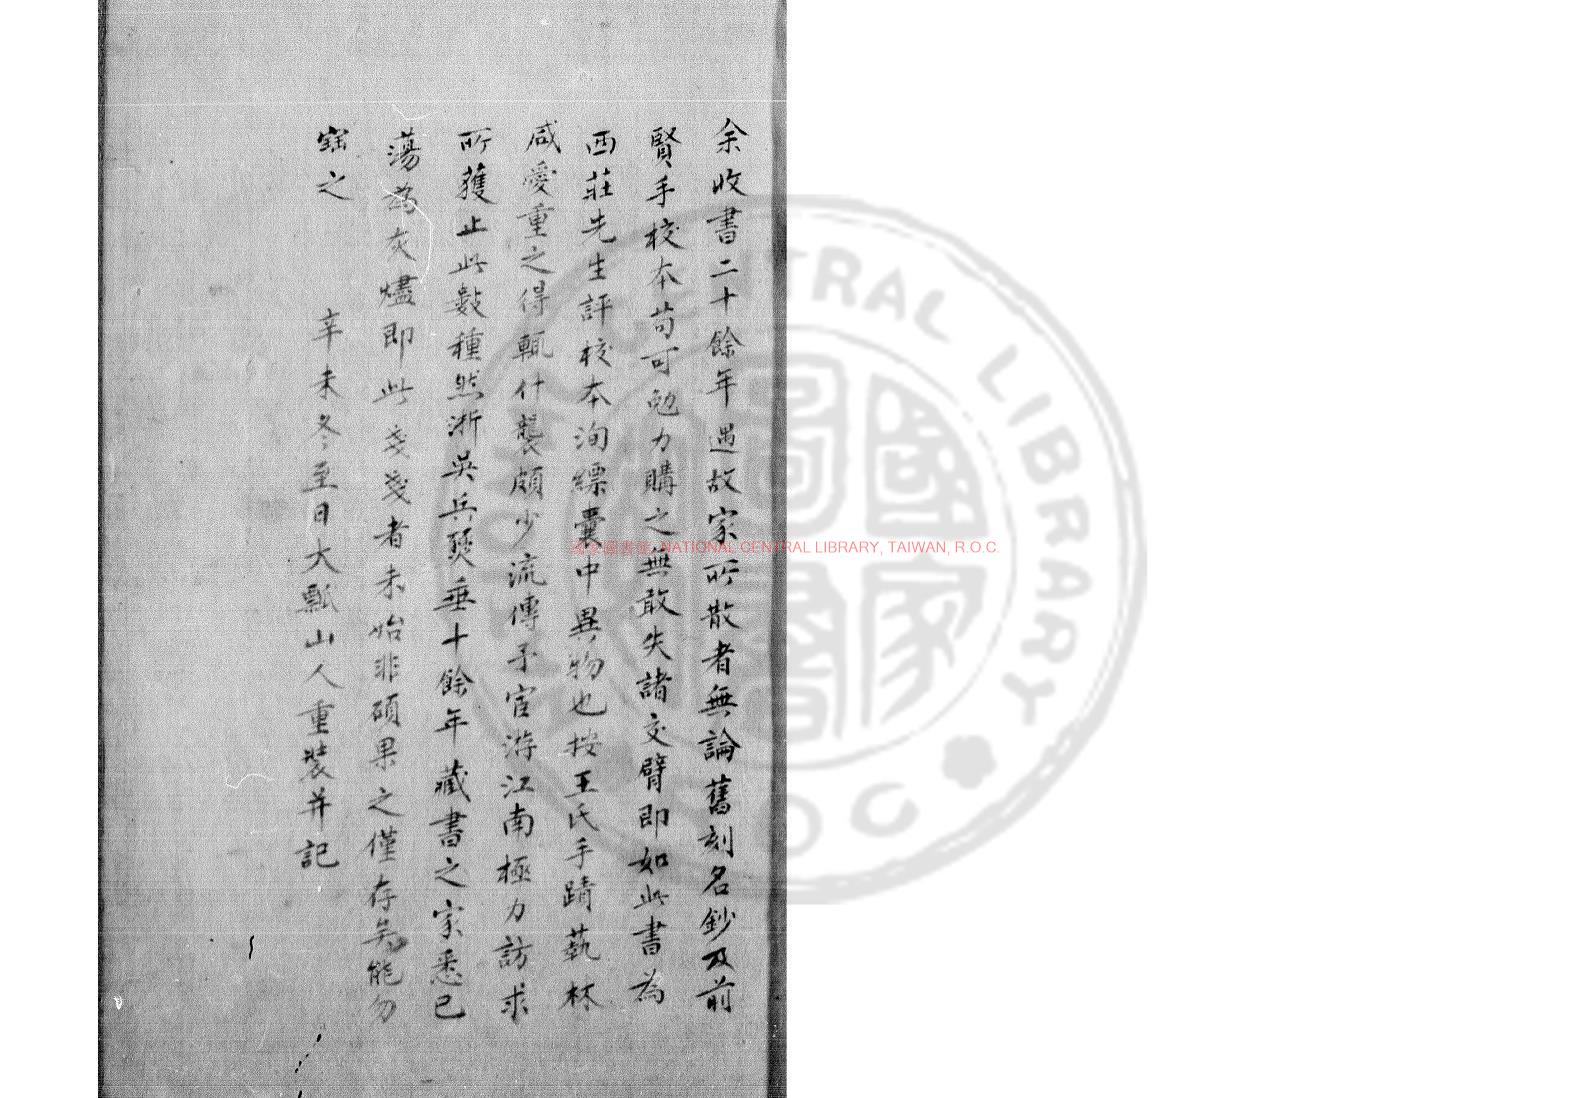 余收書二十餘年遇故家所散者無論舊刻名鈔及前
賢手校本苟可勉力購之無敢失諸交臂即如此書為
西莊先生評校本洵縹囊中異物也按王氏手蹟藝林
咸愛重之得輒什襲頗少流傳予宦游江南極力訪求
所獲止此數種然浙吳兵燹垂十餘年藏書之家悉已
蕩為灰燼即此戔戔者未始非碩果之僅存矣能勿
寶之
辛未冬至日大瓢山人重裝并記
國家圖書館, NATIONAL CENTRAL LIBRARY, TAIWAN, R.O.C.
NATIONAL CENTRAL LIBRARY
ROC
國家圖書